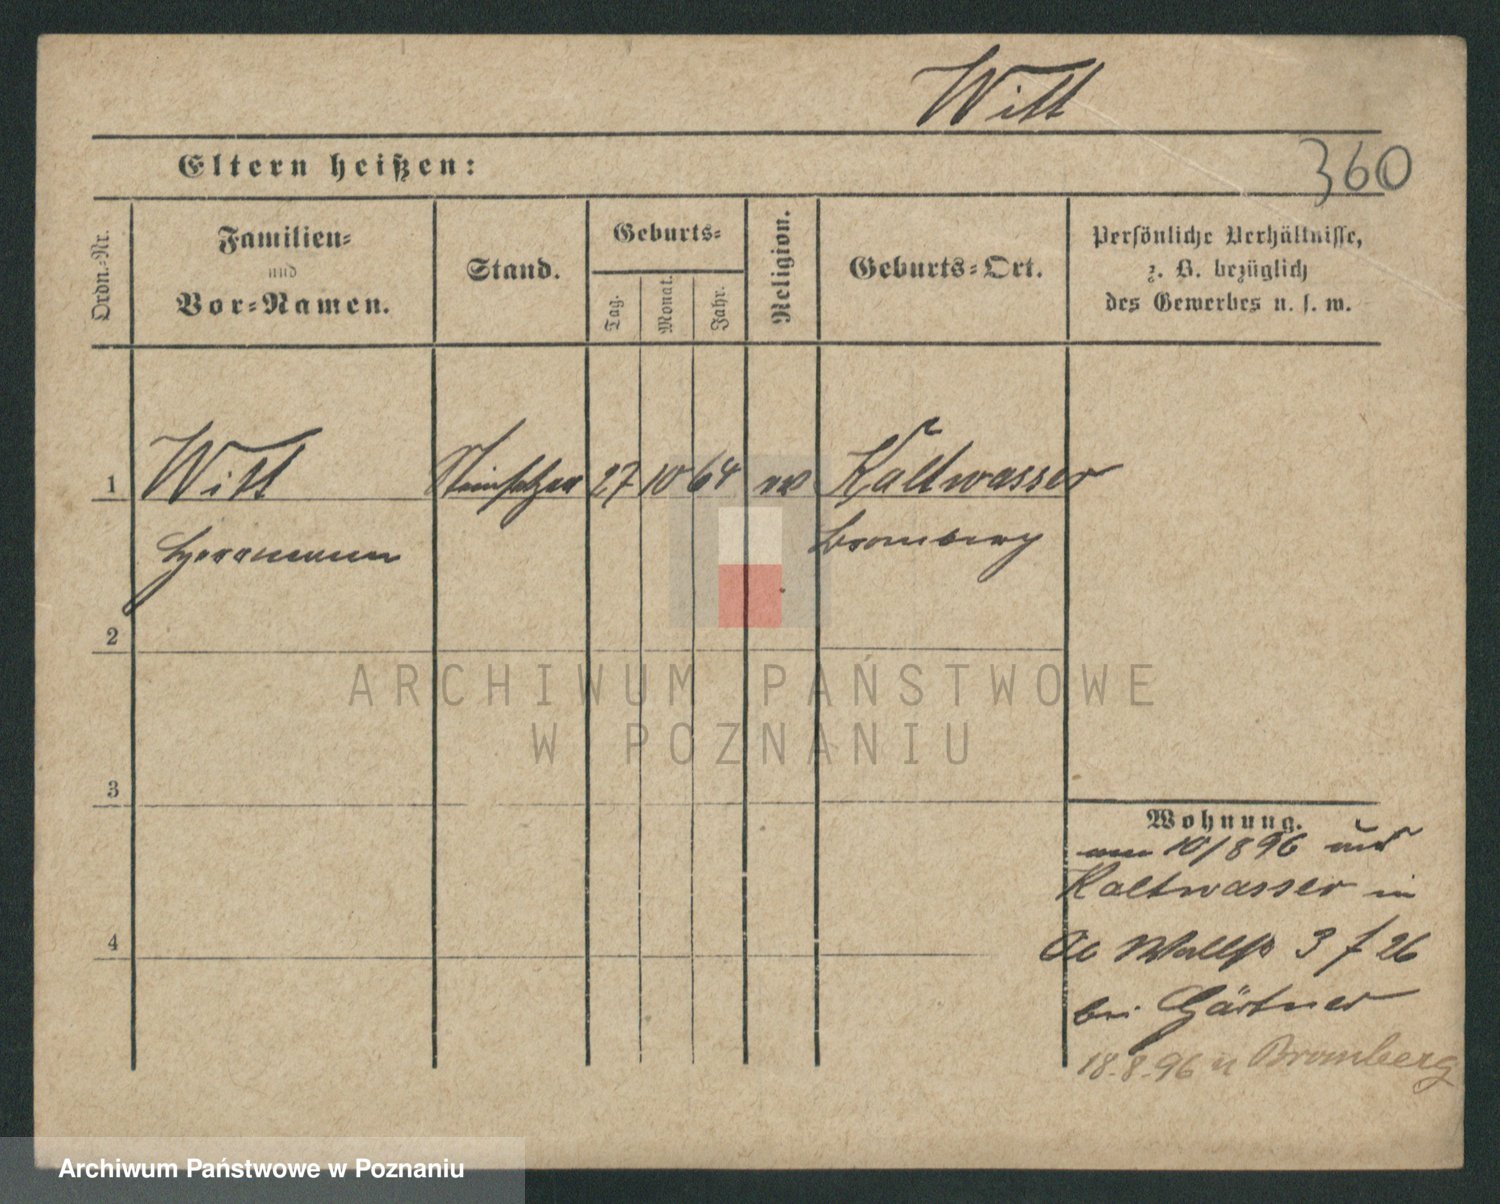 Witt
360
Eltern heißen:
Ordn.-Nr.
Familien-
und
Vor-Namen.
Stand.
Geburts-
Tag.
Monat.
Jahr.
Religion.
Geburts-Ort.
Persönliche Verhältnisse,
z. B. bezüglich
des Gewerbes u. s. w.
1 Witt Steinsetzer 27 10 64 Kaltwasser
Herrmann Bromberg
2
3
4
Wohnung.
10/8 96 aus
Kaltwasser in
Wallstr 3 f 26
bei Gärtner
18.8.96 n Bromberg
ARCHIWUM PAŃSTWOWE
W POZNANIU
Archiwum Państwowe w Poznaniu